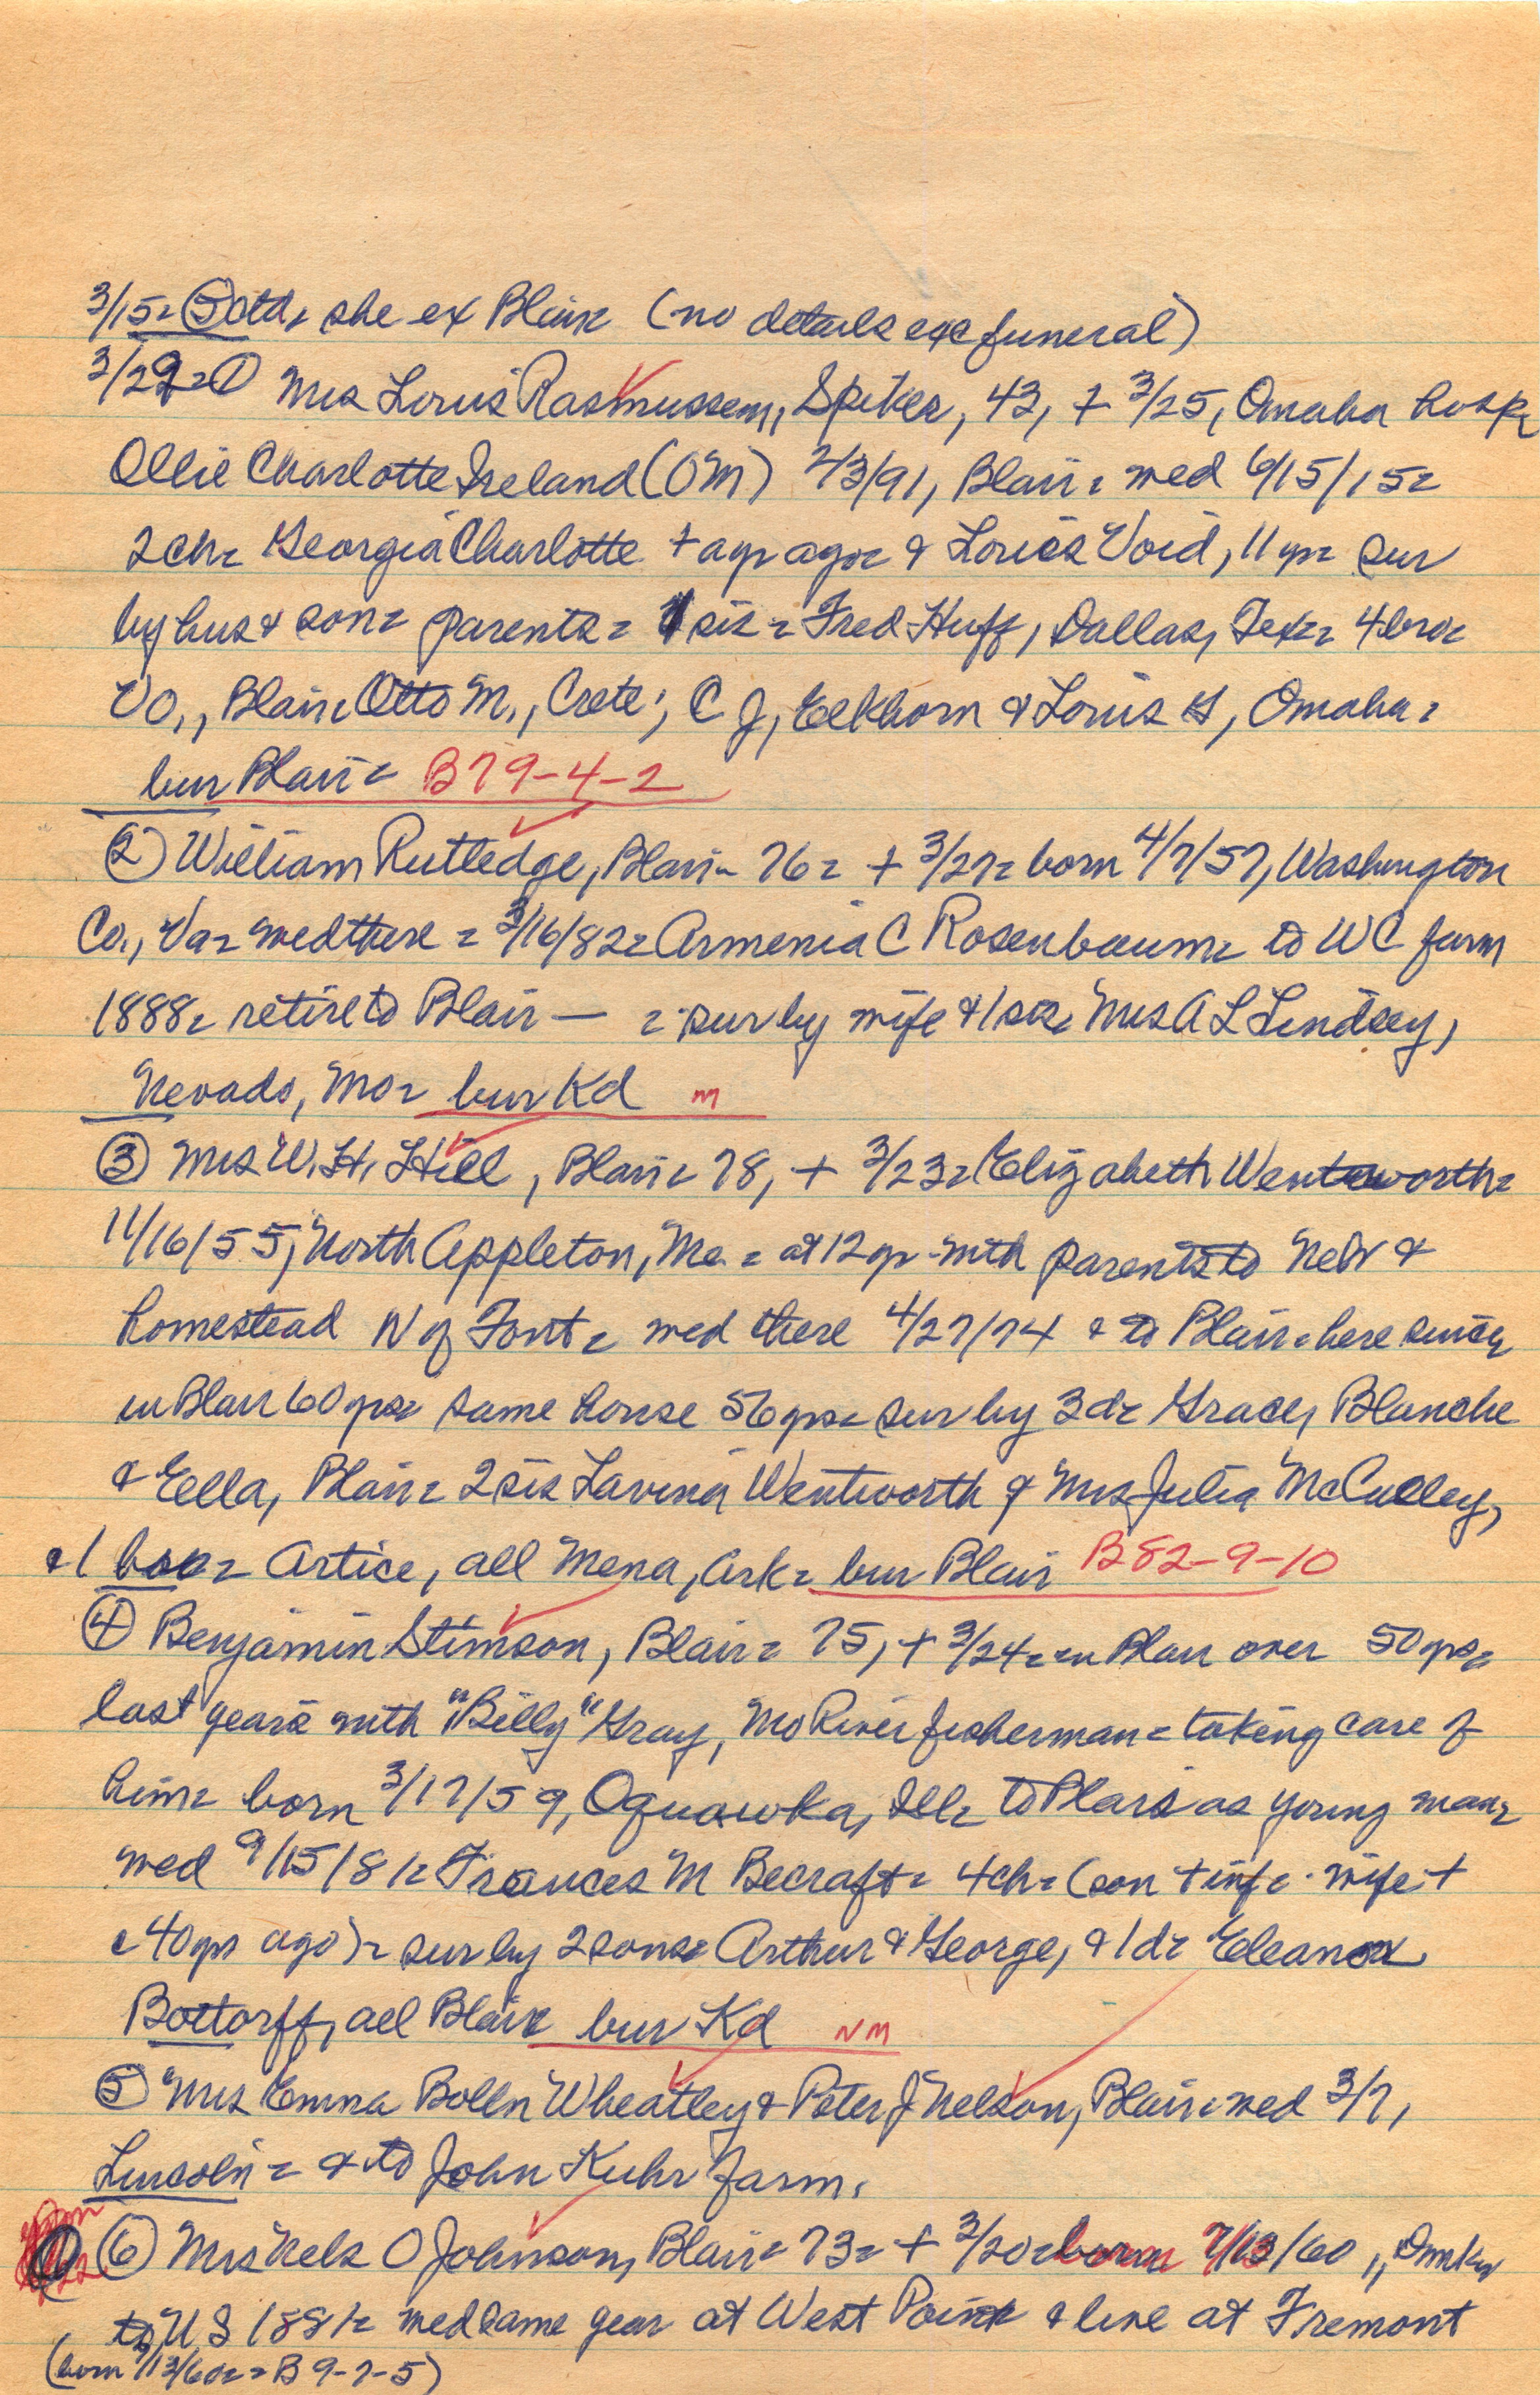 3/15= ⑤ otd, she ex Blair (no details exc funeral)
3/29= ① Mrs Louis Rasmussen, Spiker, 43, + 3/25, Omaha hosp=
Ollie Charlotte Ireland (OM) 2/3/91, Blair= wed 6/15/15=
2ch= Georgia Charlotte + a yr ago= & Louis Void, 11 yr= sur
by hus & son= parents= 1 sis= Fred Huff, Dallas, Tex= 4 bro=
VO., Blair= Otto M., Crete; C J, Elkhorn & Louis G, Omaha=
bur Blair= B79-4-2
② William Rutledge, Blair= 76= + 3/27= born 4/7/57, Washington
Co., Va= wed there = 3/16/82= Armenia C Rosenbaum= to WC farm
1888= retire to Blair — = sur by wife & 1 sis= Mrs A L Lindsey,
Nevada, Mo= bur Kd M
③ Mrs W. H. Hill, Blair= 78, + 3/23= Elizabeth Wentworth=
11/16/55, North Appleton, Me.= at 12 yr with parents to Neb &
homestead N of Font= wed there 4/27/74 & to Blair= here since=
in Blair 60 yrs= same house 56 yrs= sur by 3 d= Grace, Blanche
& Ella, Blair= 2 sis Lavina Wentworth & Mrs Julia McCulley,
& 1 bro= Artice, all Mena, Ark= bur Blair B82-9-10
④ Benjamin Stimson, Blair= 75, + 3/24= in Blair over 50 yrs=
last years with "Billy" Gray, Mo River fisherman= taking care of
him= born 3/17/59, Oquawka, Ill= to Blair as young man=
wed 9/15/81= Frances M Becraft= 4ch= (son + inf= wife +
c 40 yrs ago)= sur by 2 sons= Arthur & George, & 1 d= Eleanor
Bottorff, all Blair bur Kd NM
⑤ Mrs Emma Bolln Wheatley & Peter J Nelson, Blair= wed 3/7,
Lincoln= & to John Kuhr farm.
⑥ Mrs Nels O Johnson, Blair= 73= + 3/20= born 7/13/60, Dmk=
to US 1881= wed same year at West Point & live at Fremont
(born 7/13/60= = B 9-7-5)